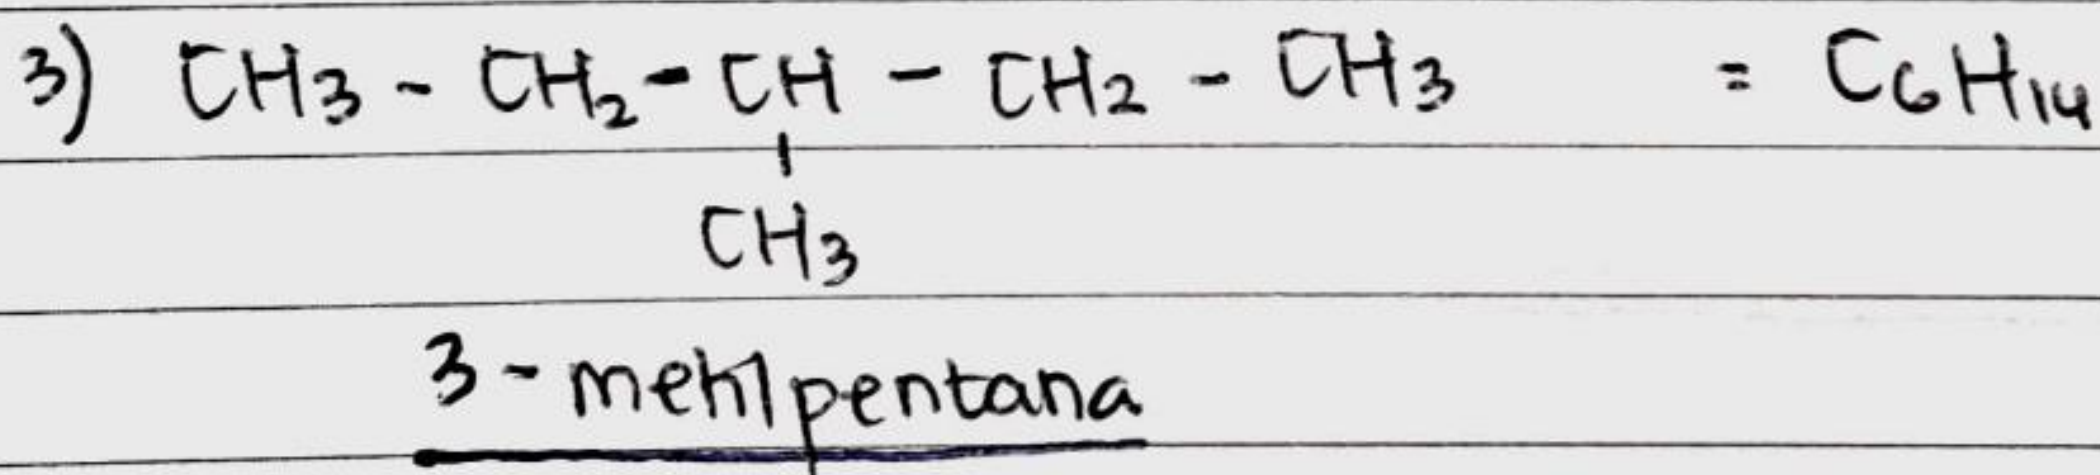 3) CH3 - CH2 - CH - CH2 - CH3 = C6H14
CH3
3 - metilpentana